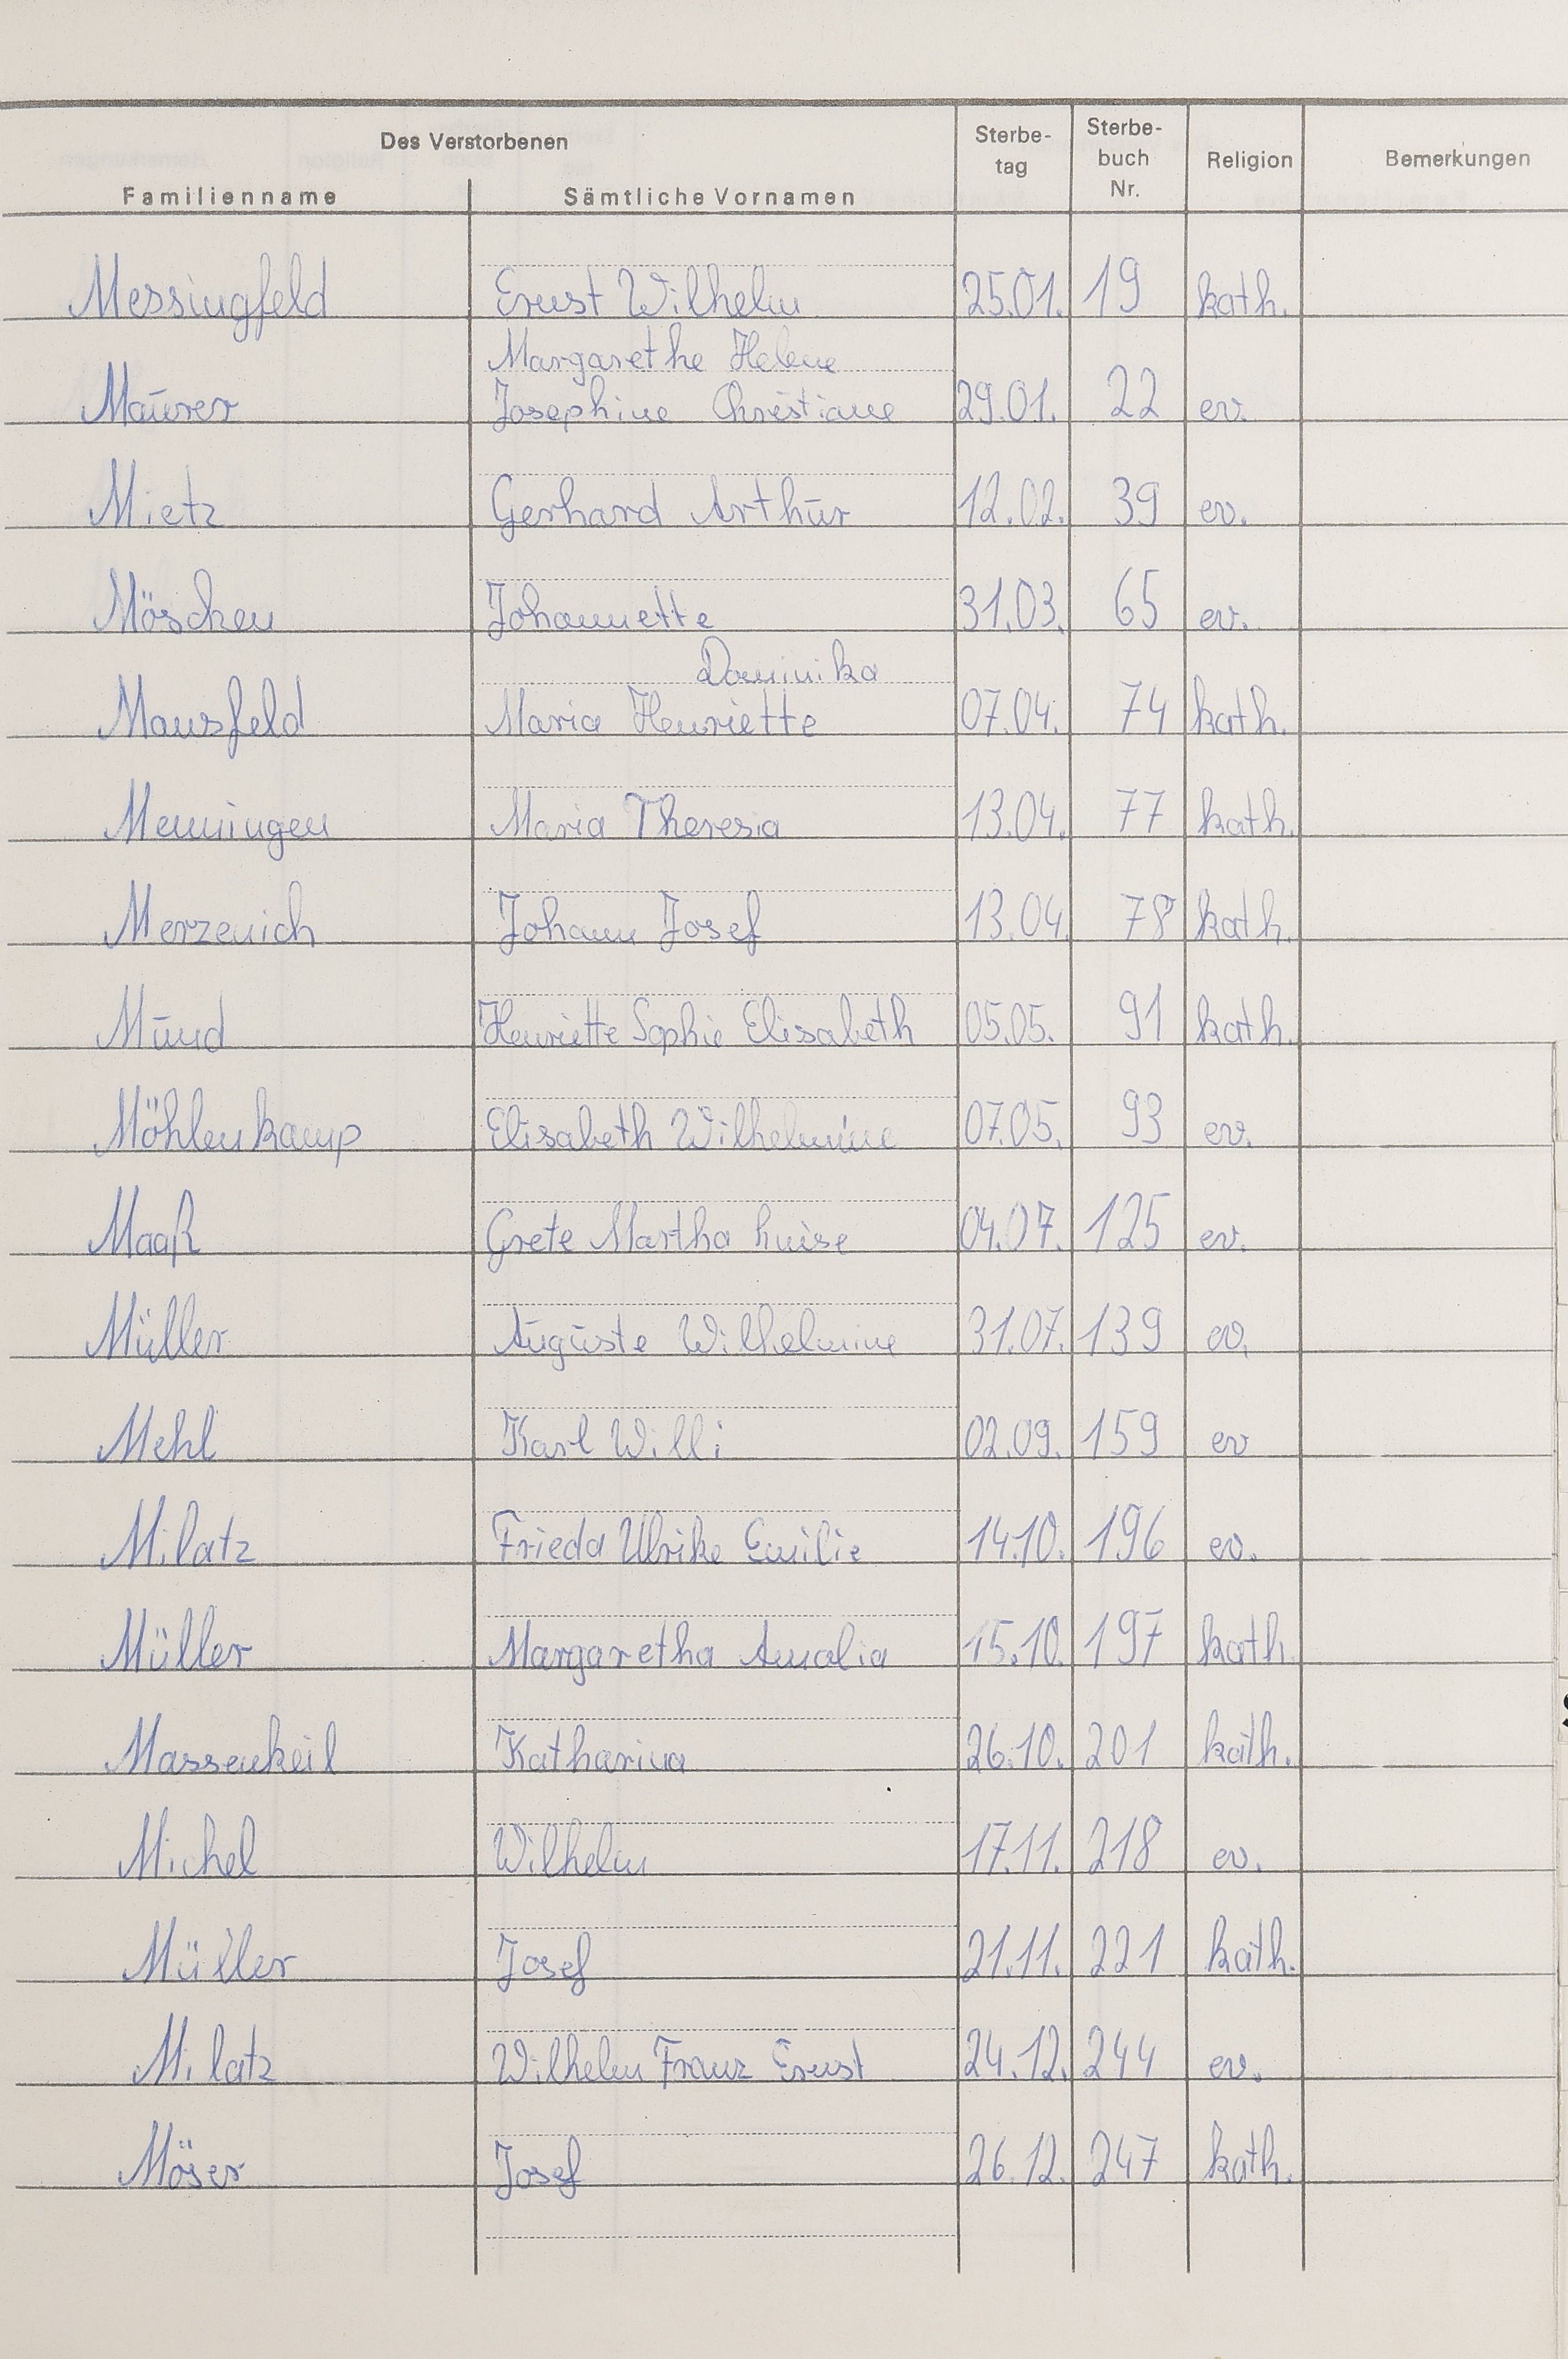 Des Verstorbenen
Familienname Sämtliche Vornamen Sterbe-tag Sterbe-buch Nr. Religion Bemerkungen
Messingfeld Ernst Wilhelm 25.01. 19 kath.
Margarethe Helene
Maurer Josephine Christiane 29.01. 22 ev.
Mietz Gerhard Arthur 12.02. 39 ev.
Möschen Johannette 31.03. 65 ev.
Dominika
Mausfeld Maria Henriette 07.04. 74 kath.
Menningen Maria Theresia 13.04. 77 kath.
Merzenich Johann Josef 13.04. 78 kath.
Mund Henriette Sophie Elisabeth 05.05. 91 kath.
Möhlenkamp Elisabeth Wilhelmine 07.05. 93 ev.
Maaß Grete Martha Luise 04.07. 125 ev.
Müller Auguste Wilhelmine 31.07. 139 ev.
Mehl Karl Willi 02.09. 159 ev
Milatz Frieda Ulrike Emilie 14.10. 196 ev.
Müller Margaretha Amalia 15.10. 197 kath.
Massenkeil Katharina 26.10. 201 kath.
Michel Wilhelm 17.11. 218 ev.
Müller Josef 21.11. 221 kath.
Milatz Wilhelm Franz Ernst 24.12. 244 ev.
Möser Josef 26.12. 247 kath.